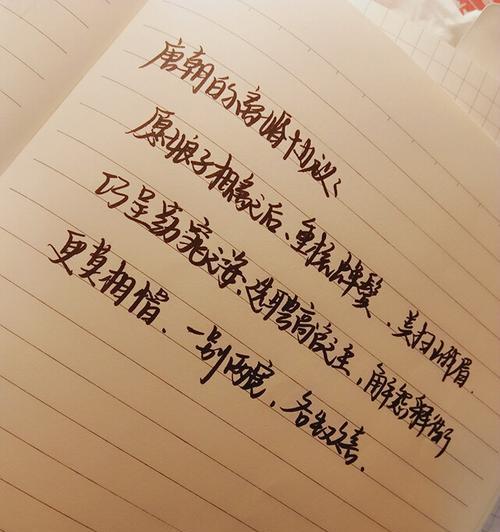 唐朝的离婚协议
愿娘子相离之后、重梳蝉鬓、美扫峨眉、
巧呈窈窕之姿、选聘高官之主、解怨释结
更莫相憎、一别两宽、各生欢喜.